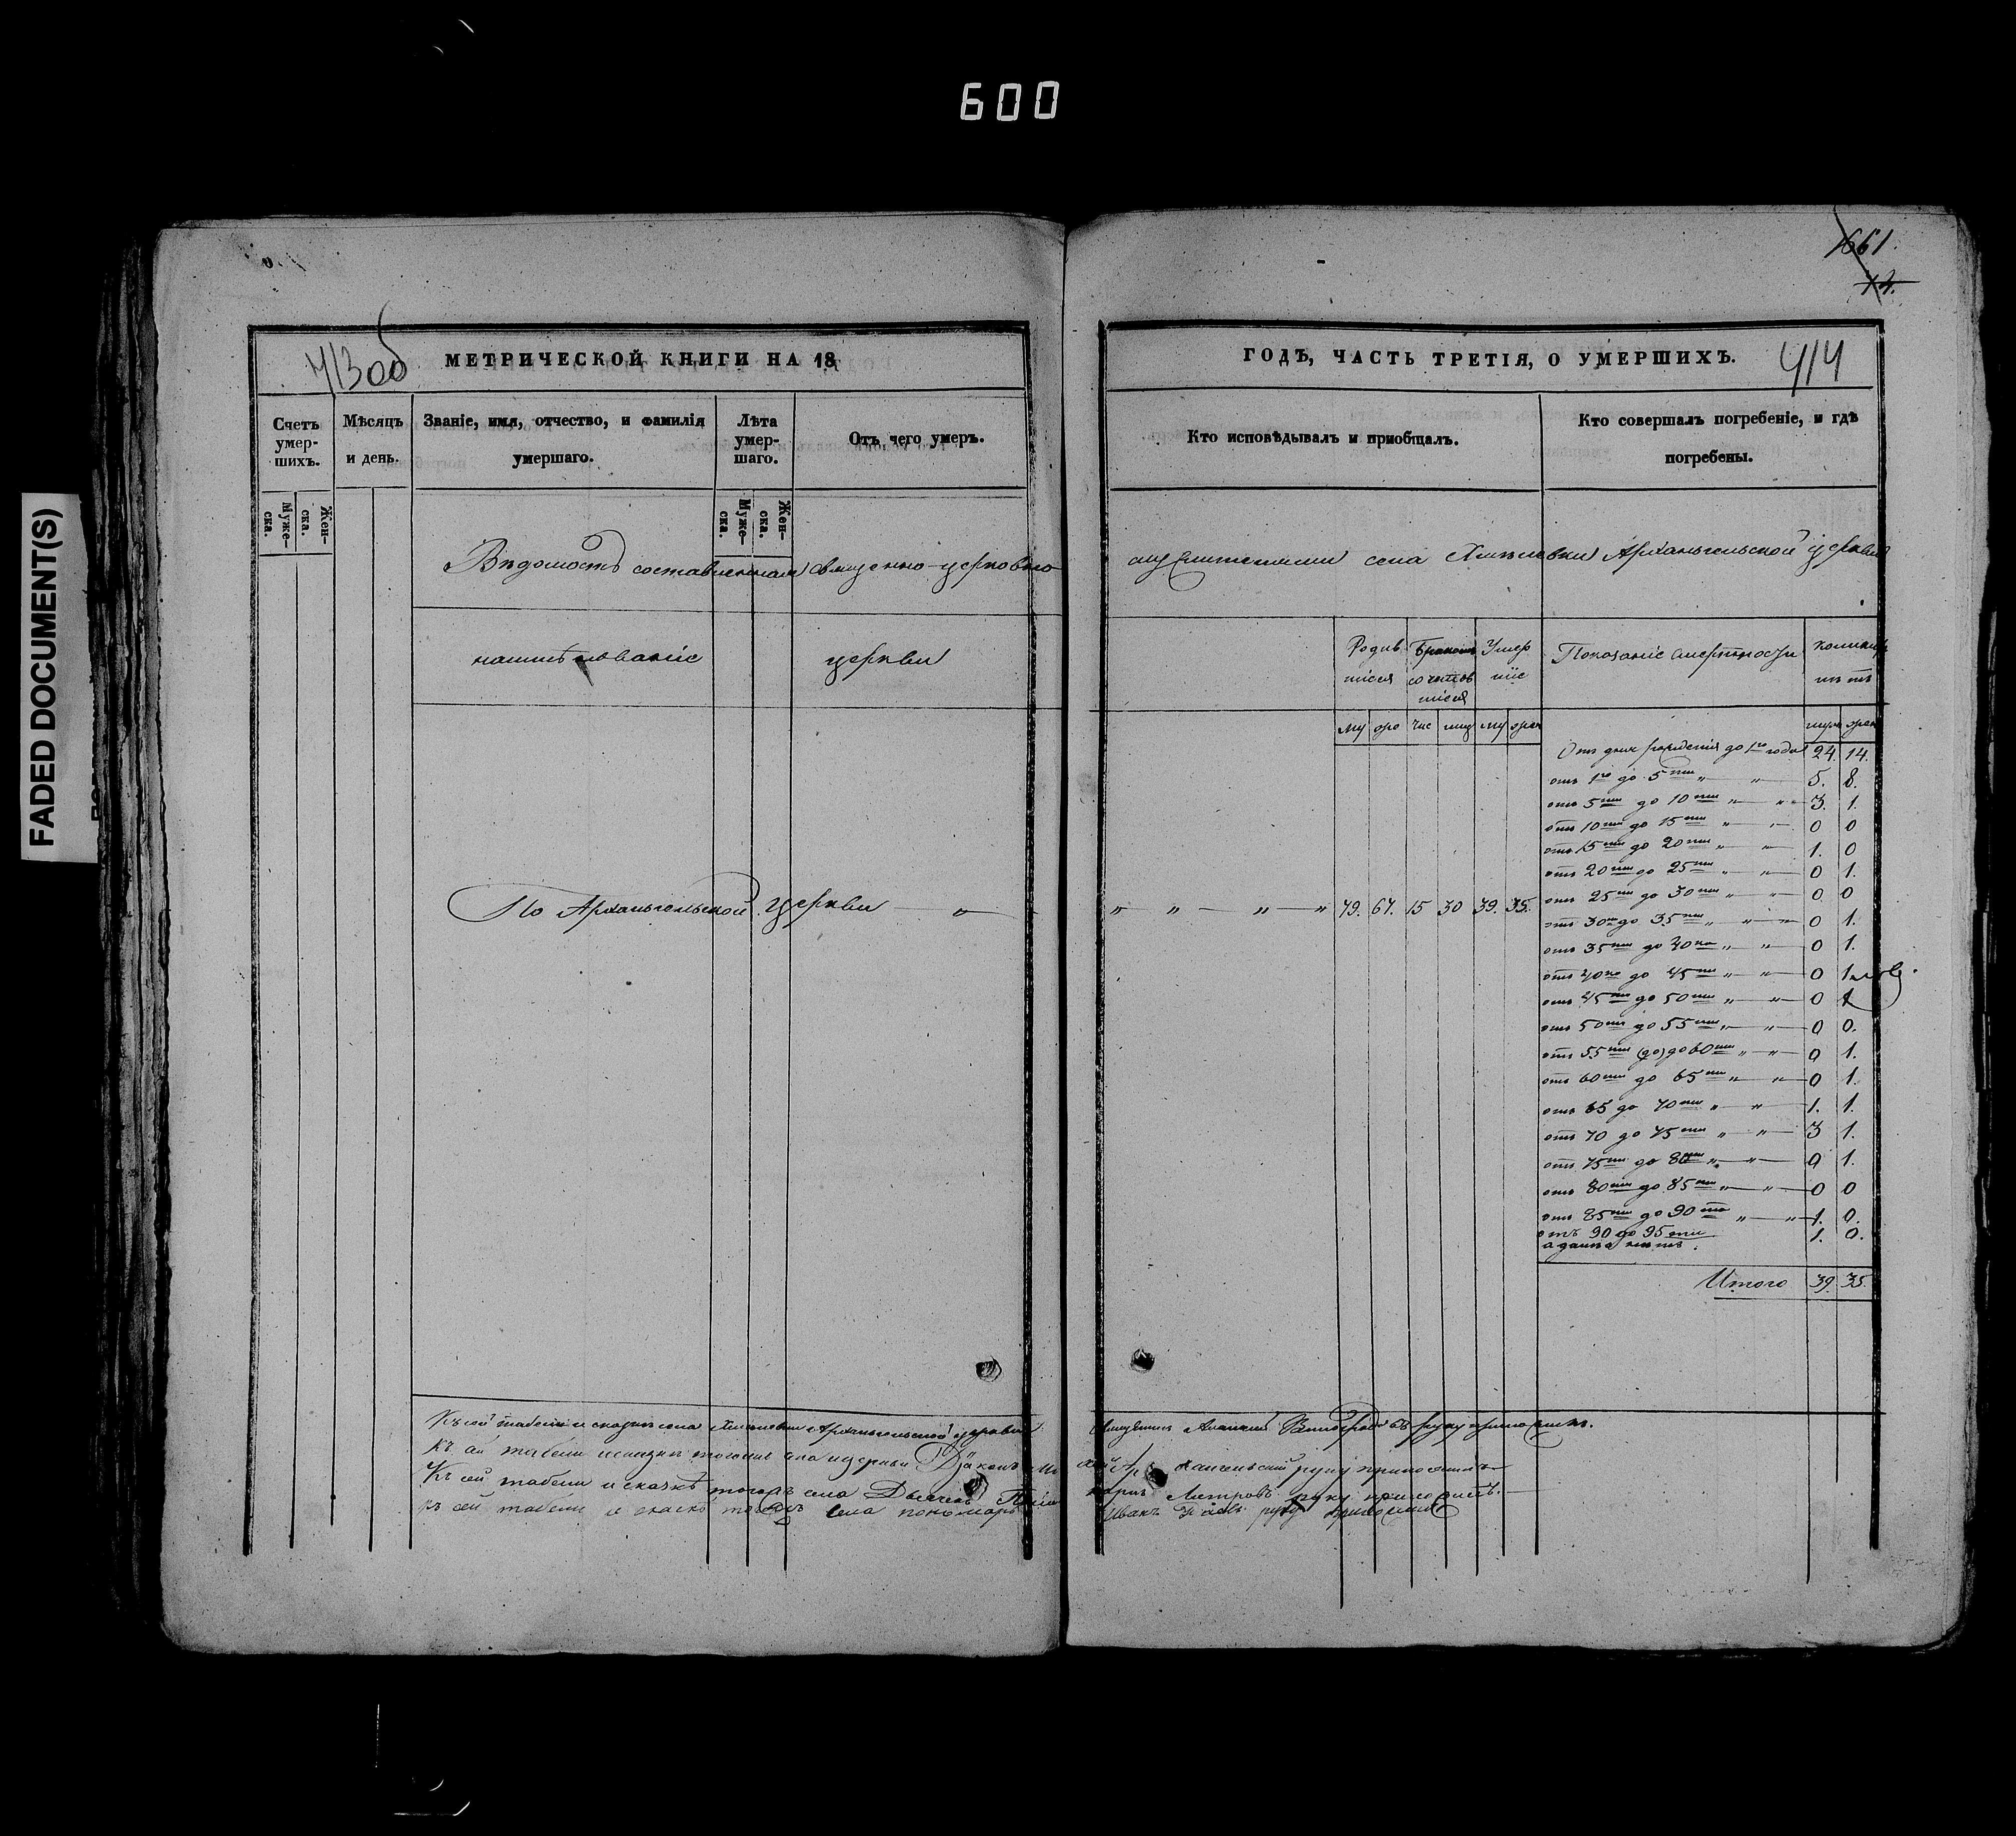 600
FADED DOCUMENT(S)
413об
МЕТРИЧЕСКОЙ КНИГИ НА 18
Счетъ умер-шихъ.
Муже-ска.
Жен-ска.
Мѣсяцъ и день.
Званіе, имя, отчество, и фамилія умершаго.
Лѣта умер-шаго.
Муже-ска.
Жен-ска.
Отъ чего умеръ.
Вѣдомость составленная священно-церковно
наименованіе церкви
По Архангельской церкви — „ —
Къ сей табели и сказкѣ села Архангельской церкви
Къ сей табели и сказки тогожъ села и церкви Діаконъ
Къ сей табели и сказкѣ тогожъ села Дьячекъ
къ сей табели и сказкѣ тогожъ села пономарь
1661.
ГОДЪ, ЧАСТЬ ТРЕТІЯ, О УМЕРШИХЪ.
414
Кто исповѣдывалъ и пріобщалъ.
Кто совершалъ погребеніе, и гдѣ погребены.
служителями села Архангельской церкви
Родив шіеся
Бракомъ сочетав шіеся
Умер шіе
Показаніе смертности
му же чис лиц му жен
Отъ дня рожденія до 1го года 24. 14.
отъ 1го до 5ти „ — „ 5. 8.
отъ 5ти до 10ти „ — „ 3. 1.
отъ 10ти до 15ти „ — „ 0 0
отъ 15ти до 20ти „ — „ 1. 0
отъ 20ти до 25ти „ — „ 0 1.
отъ 25ти до 30ти „ — „ 0 0
„ „ — „ — „ 79. 67. 15 30 39. 35.
отъ 30ти до 35ти „ — „ 0 1.
отъ 35ти до 40ка „ — „ 0 1.
отъ 40ка до 45ти „ — „ 0 1
отъ 45ти до 50ти „ — „ 0 1
отъ 50ти до 55ти „ — „ 0 0.
отъ 55ти (до) до 60ти „ — „ 0 1.
отъ 60ти до 65ти „ — „ 0 1.
отъ 65 до 70ти „ — „ 1. 1.
отъ 70 до 75ти „ — „ 3 1.
отъ 75ти до 80ти „ — „ 0 1.
отъ 80ти до 85ти „ — „ 0 0
отъ 85ти до 90то „ — „ 1. 0.
отъ 90 до 95ти 1. 0.
Итого 39. 35.
руку приложилъ.
руку приложилъ
Петровъ руку приложилъ.
Иванъ руку приложилъ